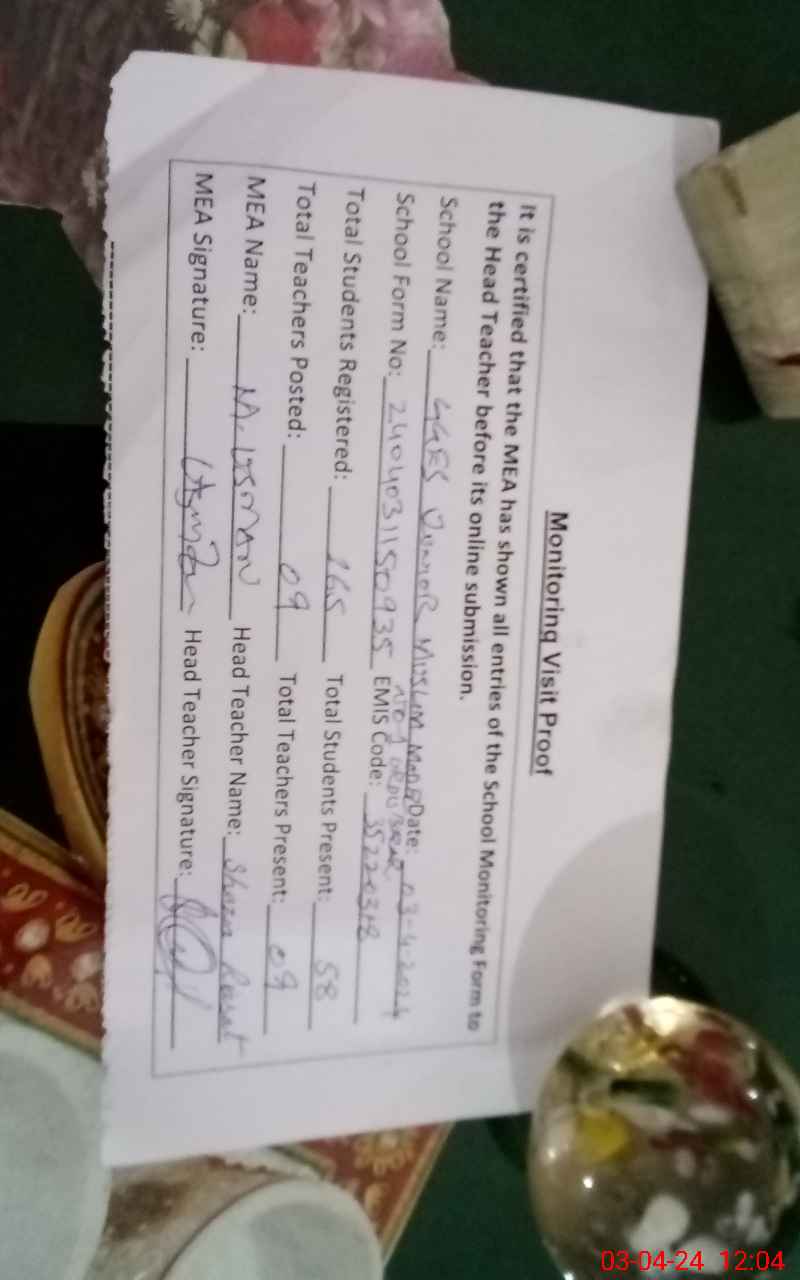 Monitoring Visit Proof
It is certified that the MEA has shown all entries of the School Monitoring Form to
the Head Teacher before its online submission.
School Name: GGES JUNIOR MUSLIM MODEL Date: 03-4-2024
NO 2 URDU BAZAR
School Form No: 2404031150935 EMIS Code: 35220318
Total Students Registered: 165 Total Students Present: 58
Total Teachers Posted: 09 Total Teachers Present: 09
MEA Name: M. USMAN Head Teacher Name:
MEA Signature: Head Teacher Signature:
03-04-24 12:04